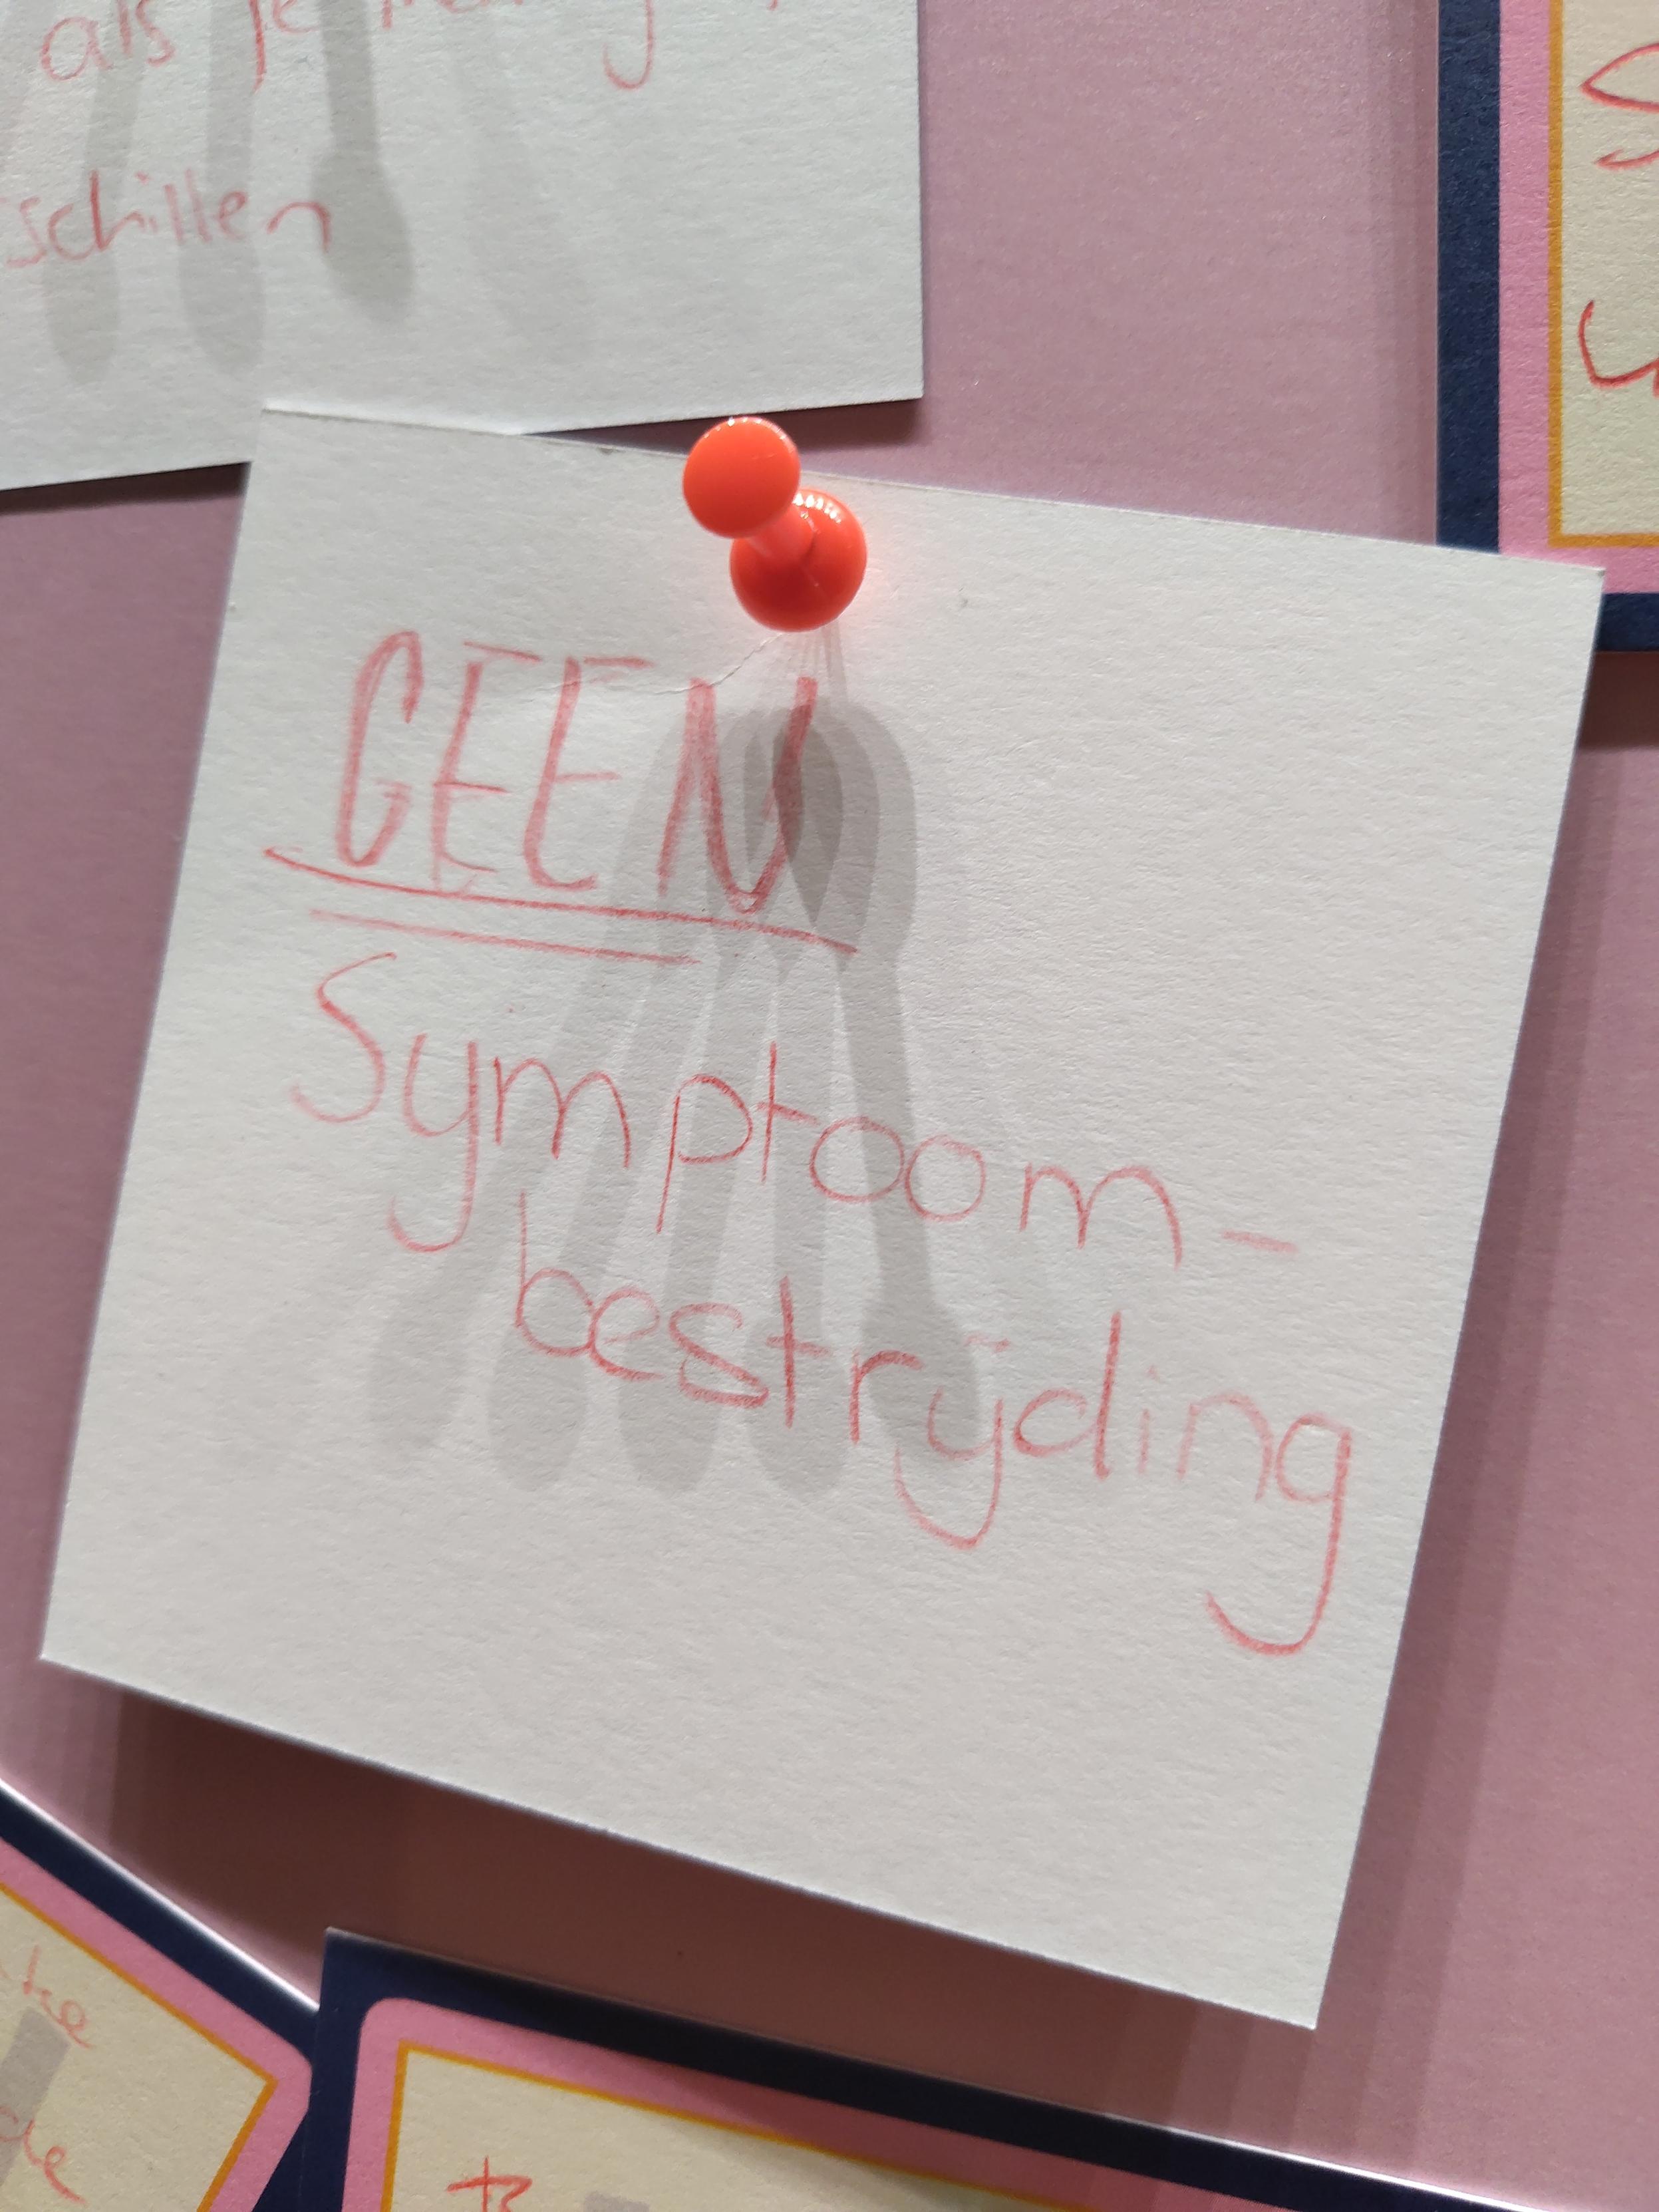 als je
schillen
GEEN
Symptoom-
bestrijding